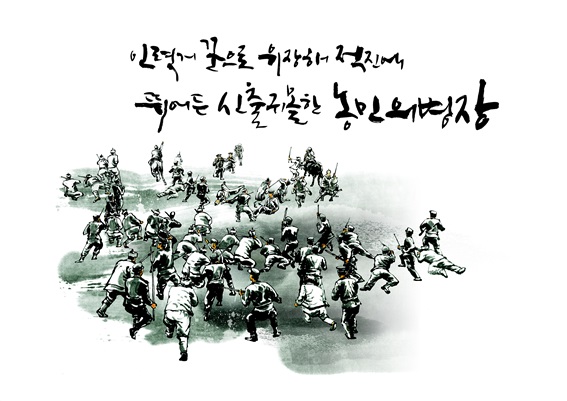 인력거 꾼으로 위장해 적진에
뛰어든 신출귀몰한 농민의병장